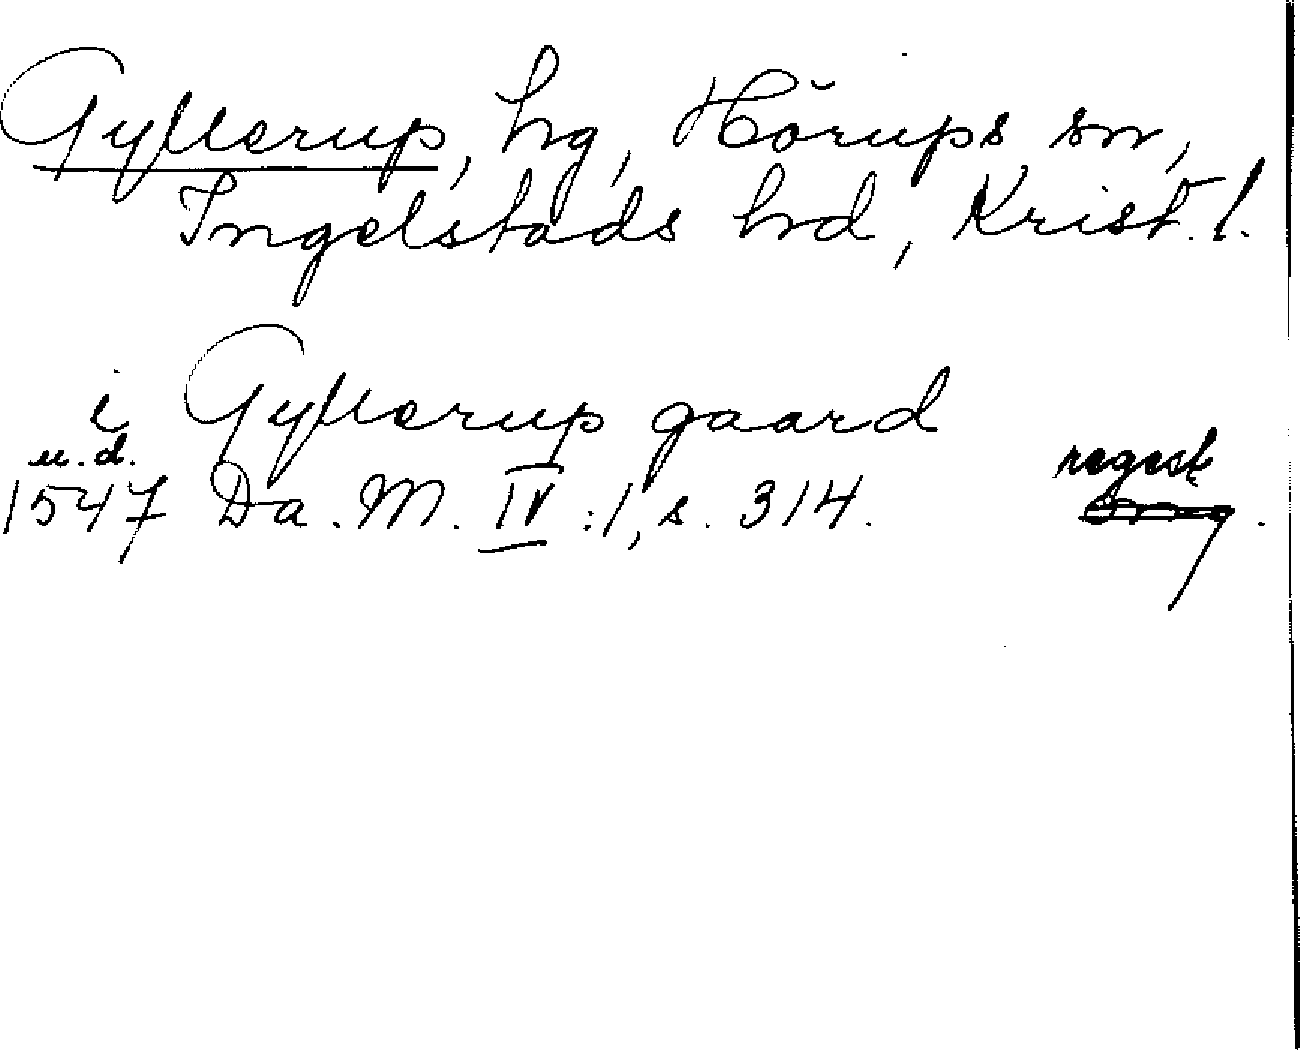 Gyllerup, hg, Hörups sn,
Ingelstads hd, Krist. l.
i Gyllerup gaard
u. d.
1547 Da. M. IV :1, s. 314. regest.